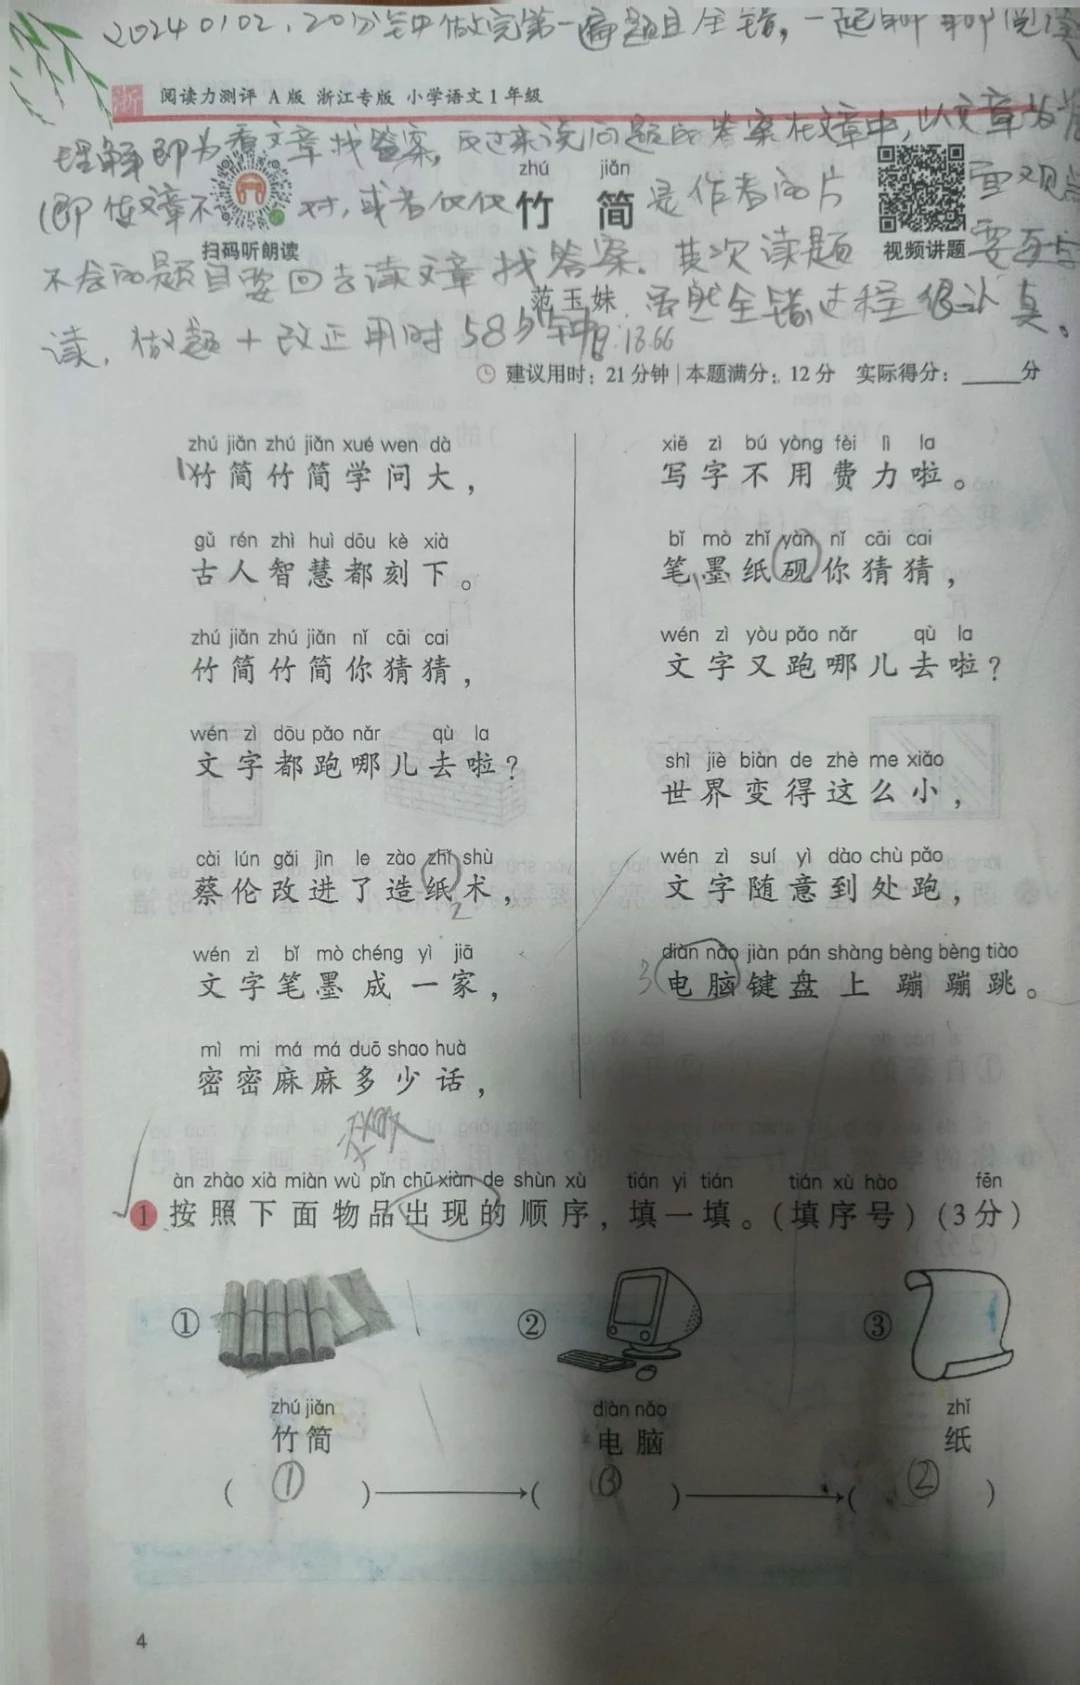 20240102，20分钟做完第一遍题目全错，一起聊聊阅读
浙 阅读力测评 A版 浙江专版 小学语文1年级
理解即为看文章找答案，反过来说问题的答案在文章中，以文章为准
(即使文章不对，或者仅仅是作者的片面观点
zhú jiǎn
竹 简
扫码听朗读
视频讲题
不会的题目要回去读文章找答案。其次读题要
范玉妹
虽然全错过程很认真。
读，做题+改正用时58分钟
建议用时：21分钟|本题满分：12分 实际得分：_____分
zhú jiǎn zhú jiǎn xué wen dà
1竹简竹简学问大，
gǔ rén zhì huì dōu kè xià
古人智慧都刻下。
zhú jiǎn zhú jiǎn nǐ cāi cai
竹简竹简你猜猜，
wén zì dōu pǎo nǎr qù la
文字都跑哪儿去啦？
cài lún gǎi jìn le zào zhǐ shù
蔡伦改进了造纸术，
2
wén zì bǐ mò chéng yì jiā
文字笔墨成一家，
mì mi má má duō shao huà
密密麻麻多少话，
xiě zì bú yòng fèi lì la
写字不用费力啦。
bǐ mò zhǐ yàn nǐ cāi cai
笔墨纸砚你猜猜，
wén zì yòu pǎo nǎr qù la
文字又跑哪儿去啦？
shì jiè biàn de zhè me xiǎo
世界变得这么小，
wén zì suí yì dào chù pǎo
文字随意到处跑，
diàn nǎo jiàn pán shàng bèng bèng tiào
3电脑键盘上蹦蹦跳。
àn zhào xià miàn wù pǐn chū xiàn de shùn xù tián yi tián tián xù hào fēn
1 按照下面物品出现的顺序，填一填。（填序号）（3分）
① ② ③
zhú jiǎn diàn nǎo zhǐ
竹简 电脑 纸
( ① )→( ③ )→( ② )
4